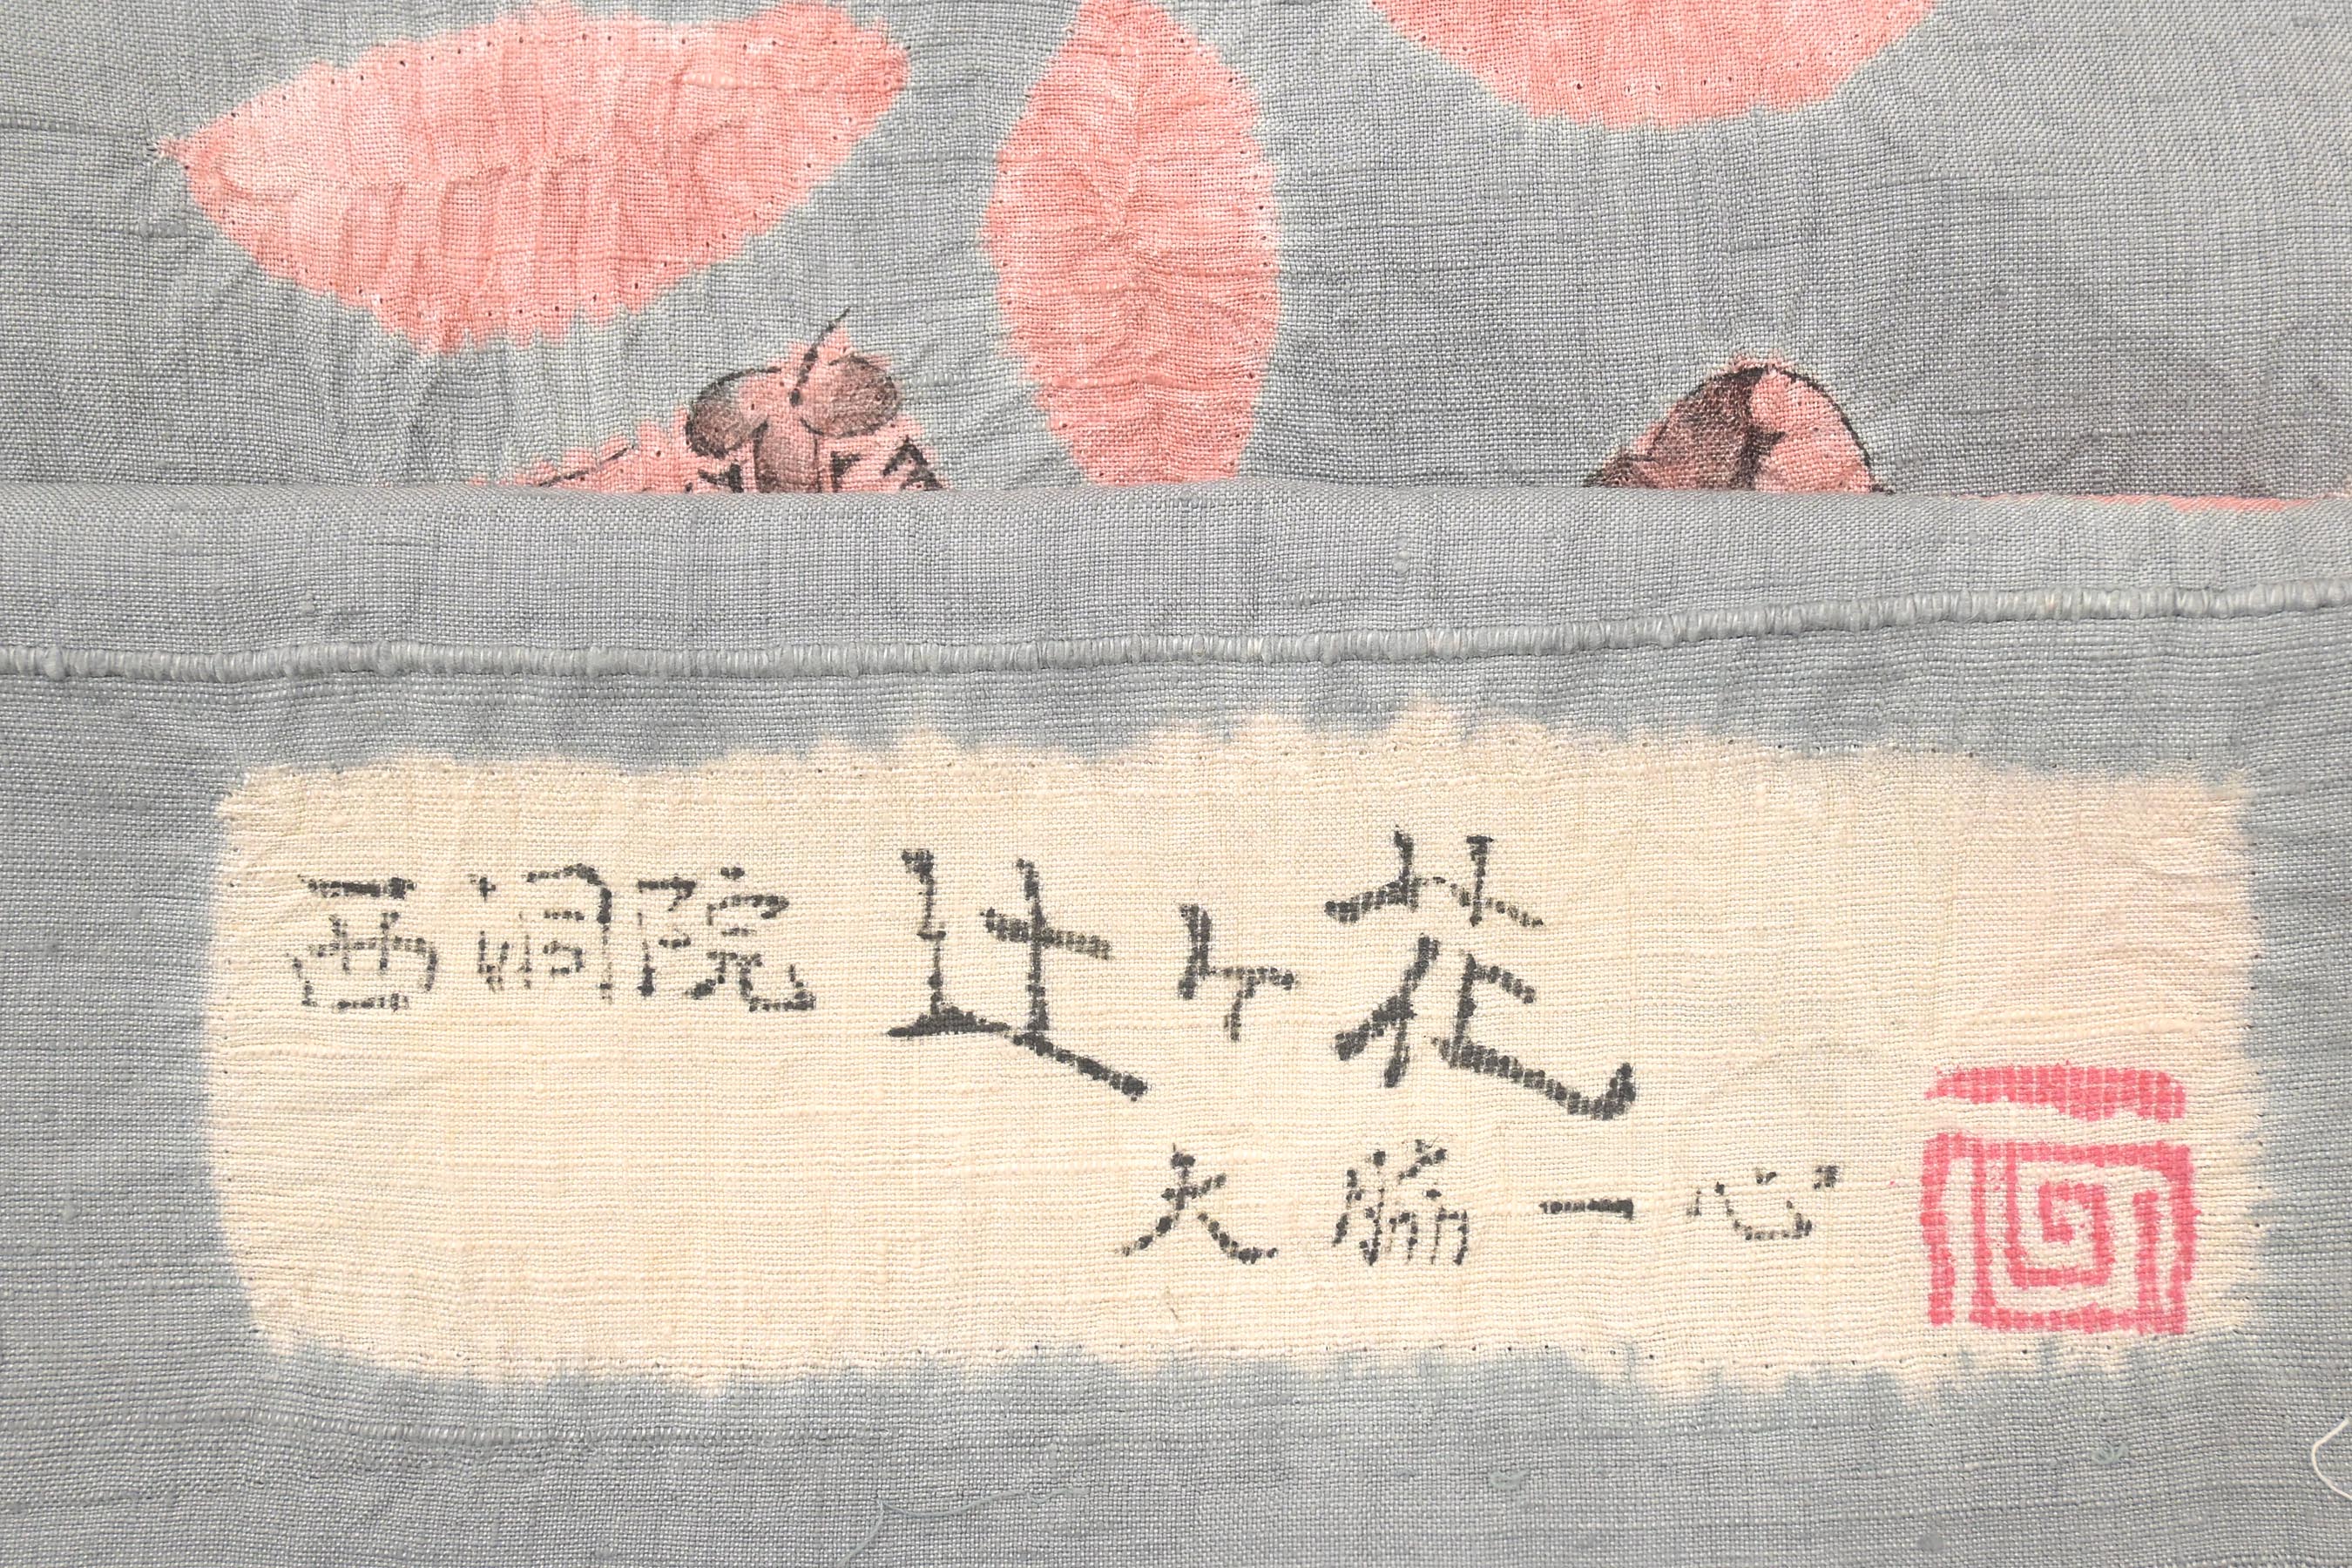 西洞院 辻ヶ花
大脇一心